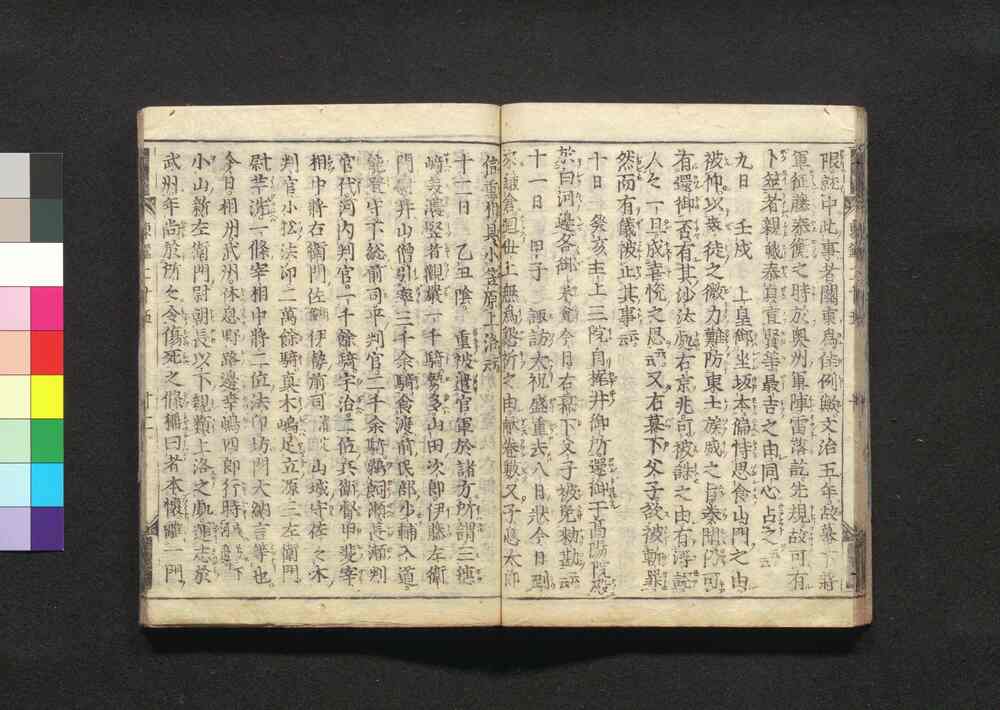 限就中此事者關東爲佳例歟文治五年故幕下將
軍征藤泰衡之時於奥州軍陣雷落訖先規故可有
卜筮者親職泰貞宣賢等最吉之由同心占之云云
九日 壬戌 上皇御坐坂本偏恃思食山門之由
被仰以衆徒之微力難防東士族威之旨奏聞仍可
有還御否有其沙汰右京兆可被誅之由有浮說
人々一旦成喜悅之思云云又右幕下父子欲被斬罪
然而有議被止其事云云
十日 癸亥主上三院自梶井御所還御于高陽院殿
於白河邊各御 今日右幕下父子被免勅勘云云
十一日 甲子 諏訪大祝盛重去八日狀今日到
鎌倉 世上無爲 祈之由獻卷數又子息太郎
信重 具小笠原上洛云云
十二日 乙丑陰 重被遣官軍於諸方所謂三穗
崎美濃竪者觀嚴一千騎勢多山田次郎伊藤左衛
門尉井山僧引率三千余騎食渡前民部少輔入道
能登守下総前司平判官二千余騎鵜飼瀬長瀬判
官代河内判官一千餘騎宇治二位兵衛督甲斐宰
相中將右衛門佐 伊勢前司 山城守佐々木
判官小松法印二萬餘騎真木嶋足立源三左衛門
尉芋洗一條宰相中將二位法印坊門大納言等也
今日相州武州休息野路邊幸嶋四郎行時
小山新左衛門尉朝長以下親類上洛之處運志於
武州年尚於所々令傷死之條稱曰者本懷離一門